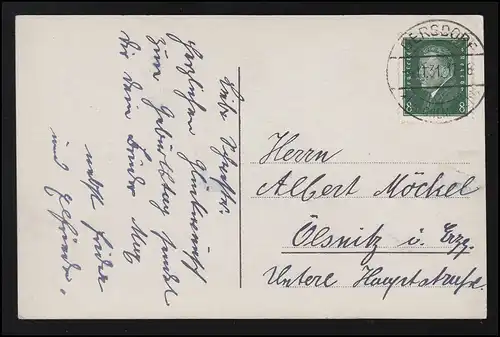 Liebe Schwester.
Herzlichen Glückwunsch
zum Geburtstag sendet
Dir dein Bruder Max
nebst Frieda
und Elfriede.
GERSDORF
8 8
Herrn
Albert Möckel
Ölsnitz i. Erzg.
Untere Hauptstraße.